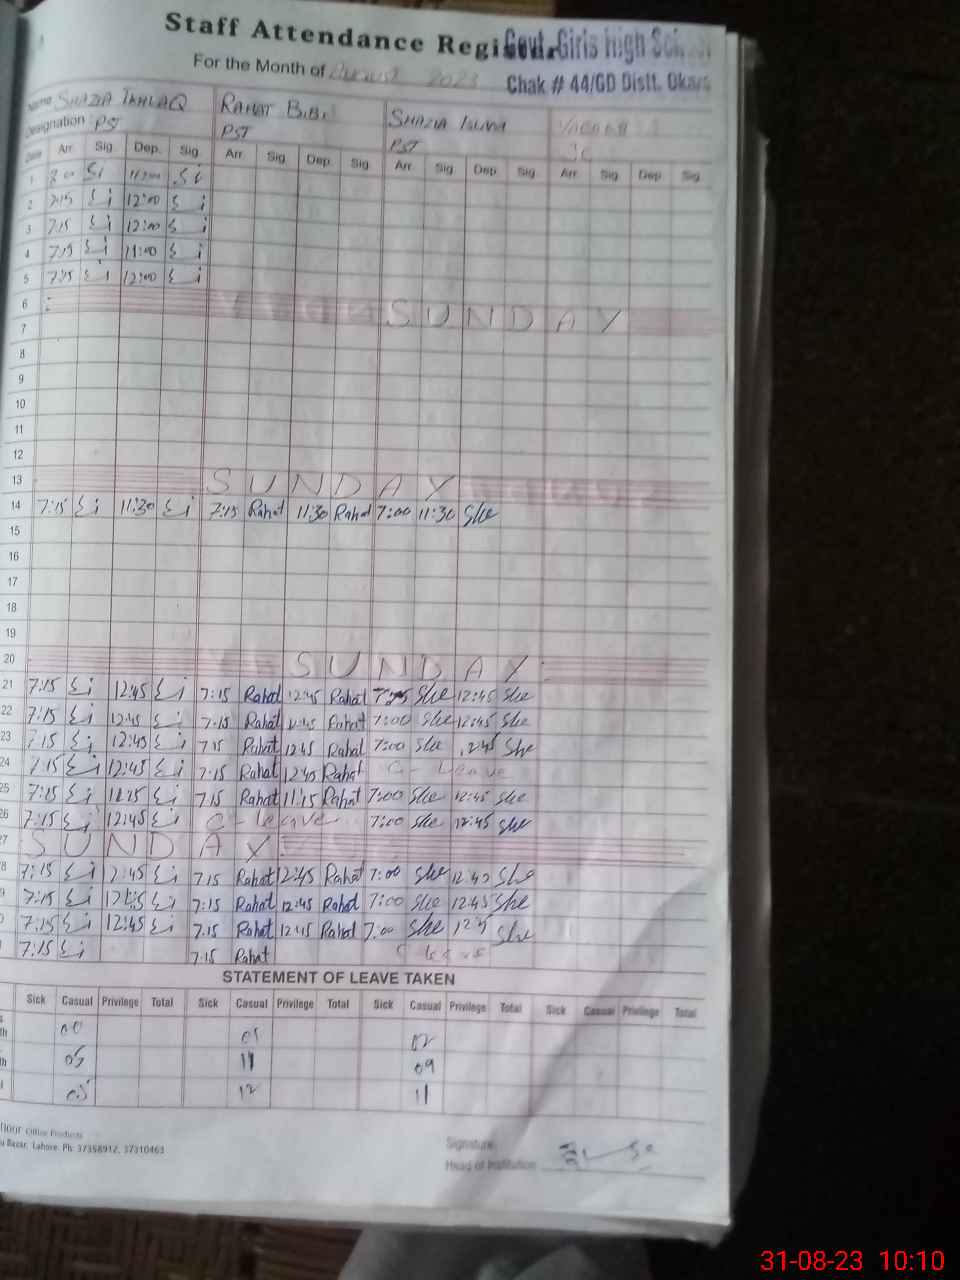 Staff Attendance Register
Govt. Girls High School
For the Month of August 2023
Chak # 44/GD Distt. Okara
Name SHAZIA IKHLAQ RAHAT B.B. SHAZIA
Designation PST PST PST
Date Arr. Sig. Dep. Sig. Arr. Sig. Dep. Sig. Arr. Sig. Dep. Sig. Arr. Sig. Dep. Sig.
1 8:00 Si Si
2 7:15 12:00
3 7:15 12:00
4 7:15 11:00
5 7:15 12:00
6
7 SUNDAY
8
9
10
11
12
13 SUNDAY
14 7:15 11:30 7:15 Rahat 11:30 Rahat 7:00 11:30 She
15
16
17
18
19
20 SUNDAY
21 7:15 12:45 7:15 Rahat 12:45 Rahat She 12:45 She
22 7:15 12:45 7:15 Rahat 12:45 Rahat 7:00 She 12:45 She
23 7:15 12:45 7:15 Rahat 12:45 Rahat 7:00 She 12:45 She
24 7:15 12:45 7:15 Rahat 12:45 Rahat C-Leave
25 7:15 11:15 7:15 Rahat 11:15 Rahat 7:00 She 12:45 She
26 7:15 12:45 C-leave 7:00 She 12:45 She
27 SUNDAY
8 7:15 12:45 7:15 Rahat 12:45 Rahat 7:00 She 12:45 She
9 7:15 12:45 7:15 Rahat 12:45 Rahat 7:00 She 12:45 She
7:15 12:45 7:15 Rahat 12:45 Rahat 7:00 She She
7:15 7:15 Rahat leave
STATEMENT OF LEAVE TAKEN
Sick Casual Privilege Total Sick Casual Privilege Total Sick Casual Privilege Total Sick Casual Privilege Total
00 01 02
05 11 09
05 12 11
Office Products
Bazar, Lahore. Ph: 37358912, 37310463
Signature
Head of Institution
31-08-23 10:10